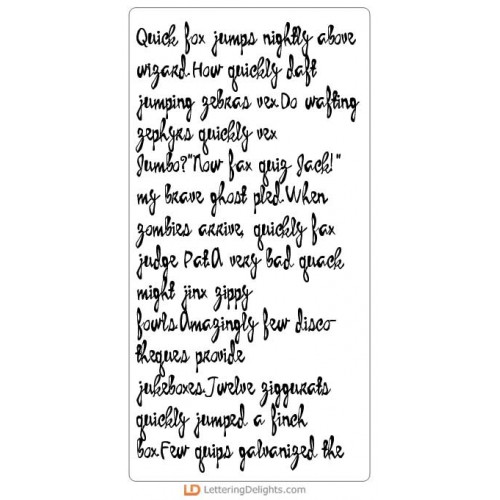 Quick fox jumps nightly above
wizard.How quickly daft
jumping zebras vex.Do wafting
zephyrs quickly vex
Jumbo?"Now fax quiz Jack!"
my brave ghost pled.When
zombies arrive, quickly fax
judge Pat.A very bad quack
might jinx zippy
fowls.Amazingly few disco
theques provide
jukeboxes.Twelve ziggurats
quickly jumped a finch
box.Few quips galvanized the
LD LetteringDelights.com